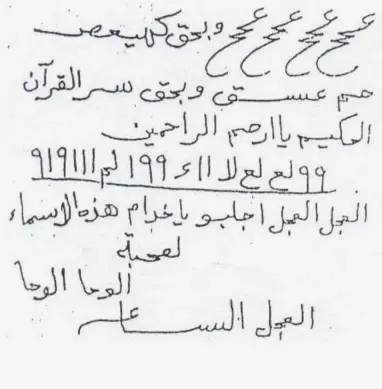 عجج عجج عجج عجج وبحق كهيعص
حم عسق وبحق سر القرآن
الحكيم يا ارحم الراحمين
٩٩ لع لع لا ١١ ء ١٩٩ لم ١١١٩١٩
العجل العجل اجلبو يا خدام هذه الاسماء
لمحبة
الوحا الوحا
العجل الساعه